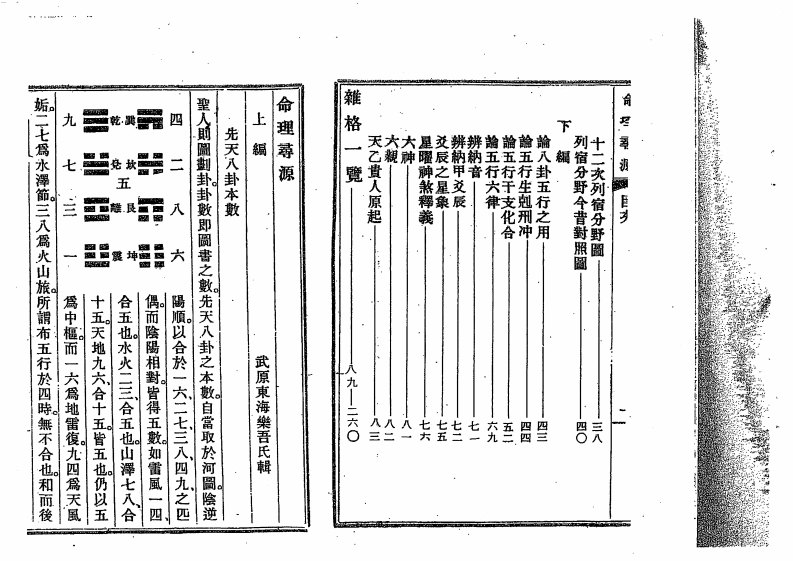 命理尋源 目次
十二次列宿分野圖 三八
列宿分野今昔對照圖 四〇
下編
論八卦五行之用 四三
論五行生剋刑冲 四四
論五行干支化合 五二
論五行六律 六九
辨納音 七一
辨納甲爻辰 七二
爻辰之星象 七五
星曜神煞釋義 七六
六神 八一
六親 八二
天乙貴人原起 八三
雜格一覽 八九—二六〇
命理尋源
上編 武原東海樂吾氏輯
先天八卦本數
聖人則圖劃卦卦數即圖書之數。先天八卦之本數。自當取於河圖陰逆
四 二 八 六
巽 坎 艮 坤
五
乾 兌 離 震
九 七 三 一
陽順。以合於一六、二七、三八、四九之匹
偶。而陰陽相對。皆得五數。如雷風一四、
合五也。水火二三、合五也。山澤七八、合
十五。天地九六、合十五。皆五也。仍以五
爲中樞。而一六爲地雷復。九四爲天風
姤。二七爲水澤節。三八爲火山旅。所謂布五行於四時。無不合也。和而後